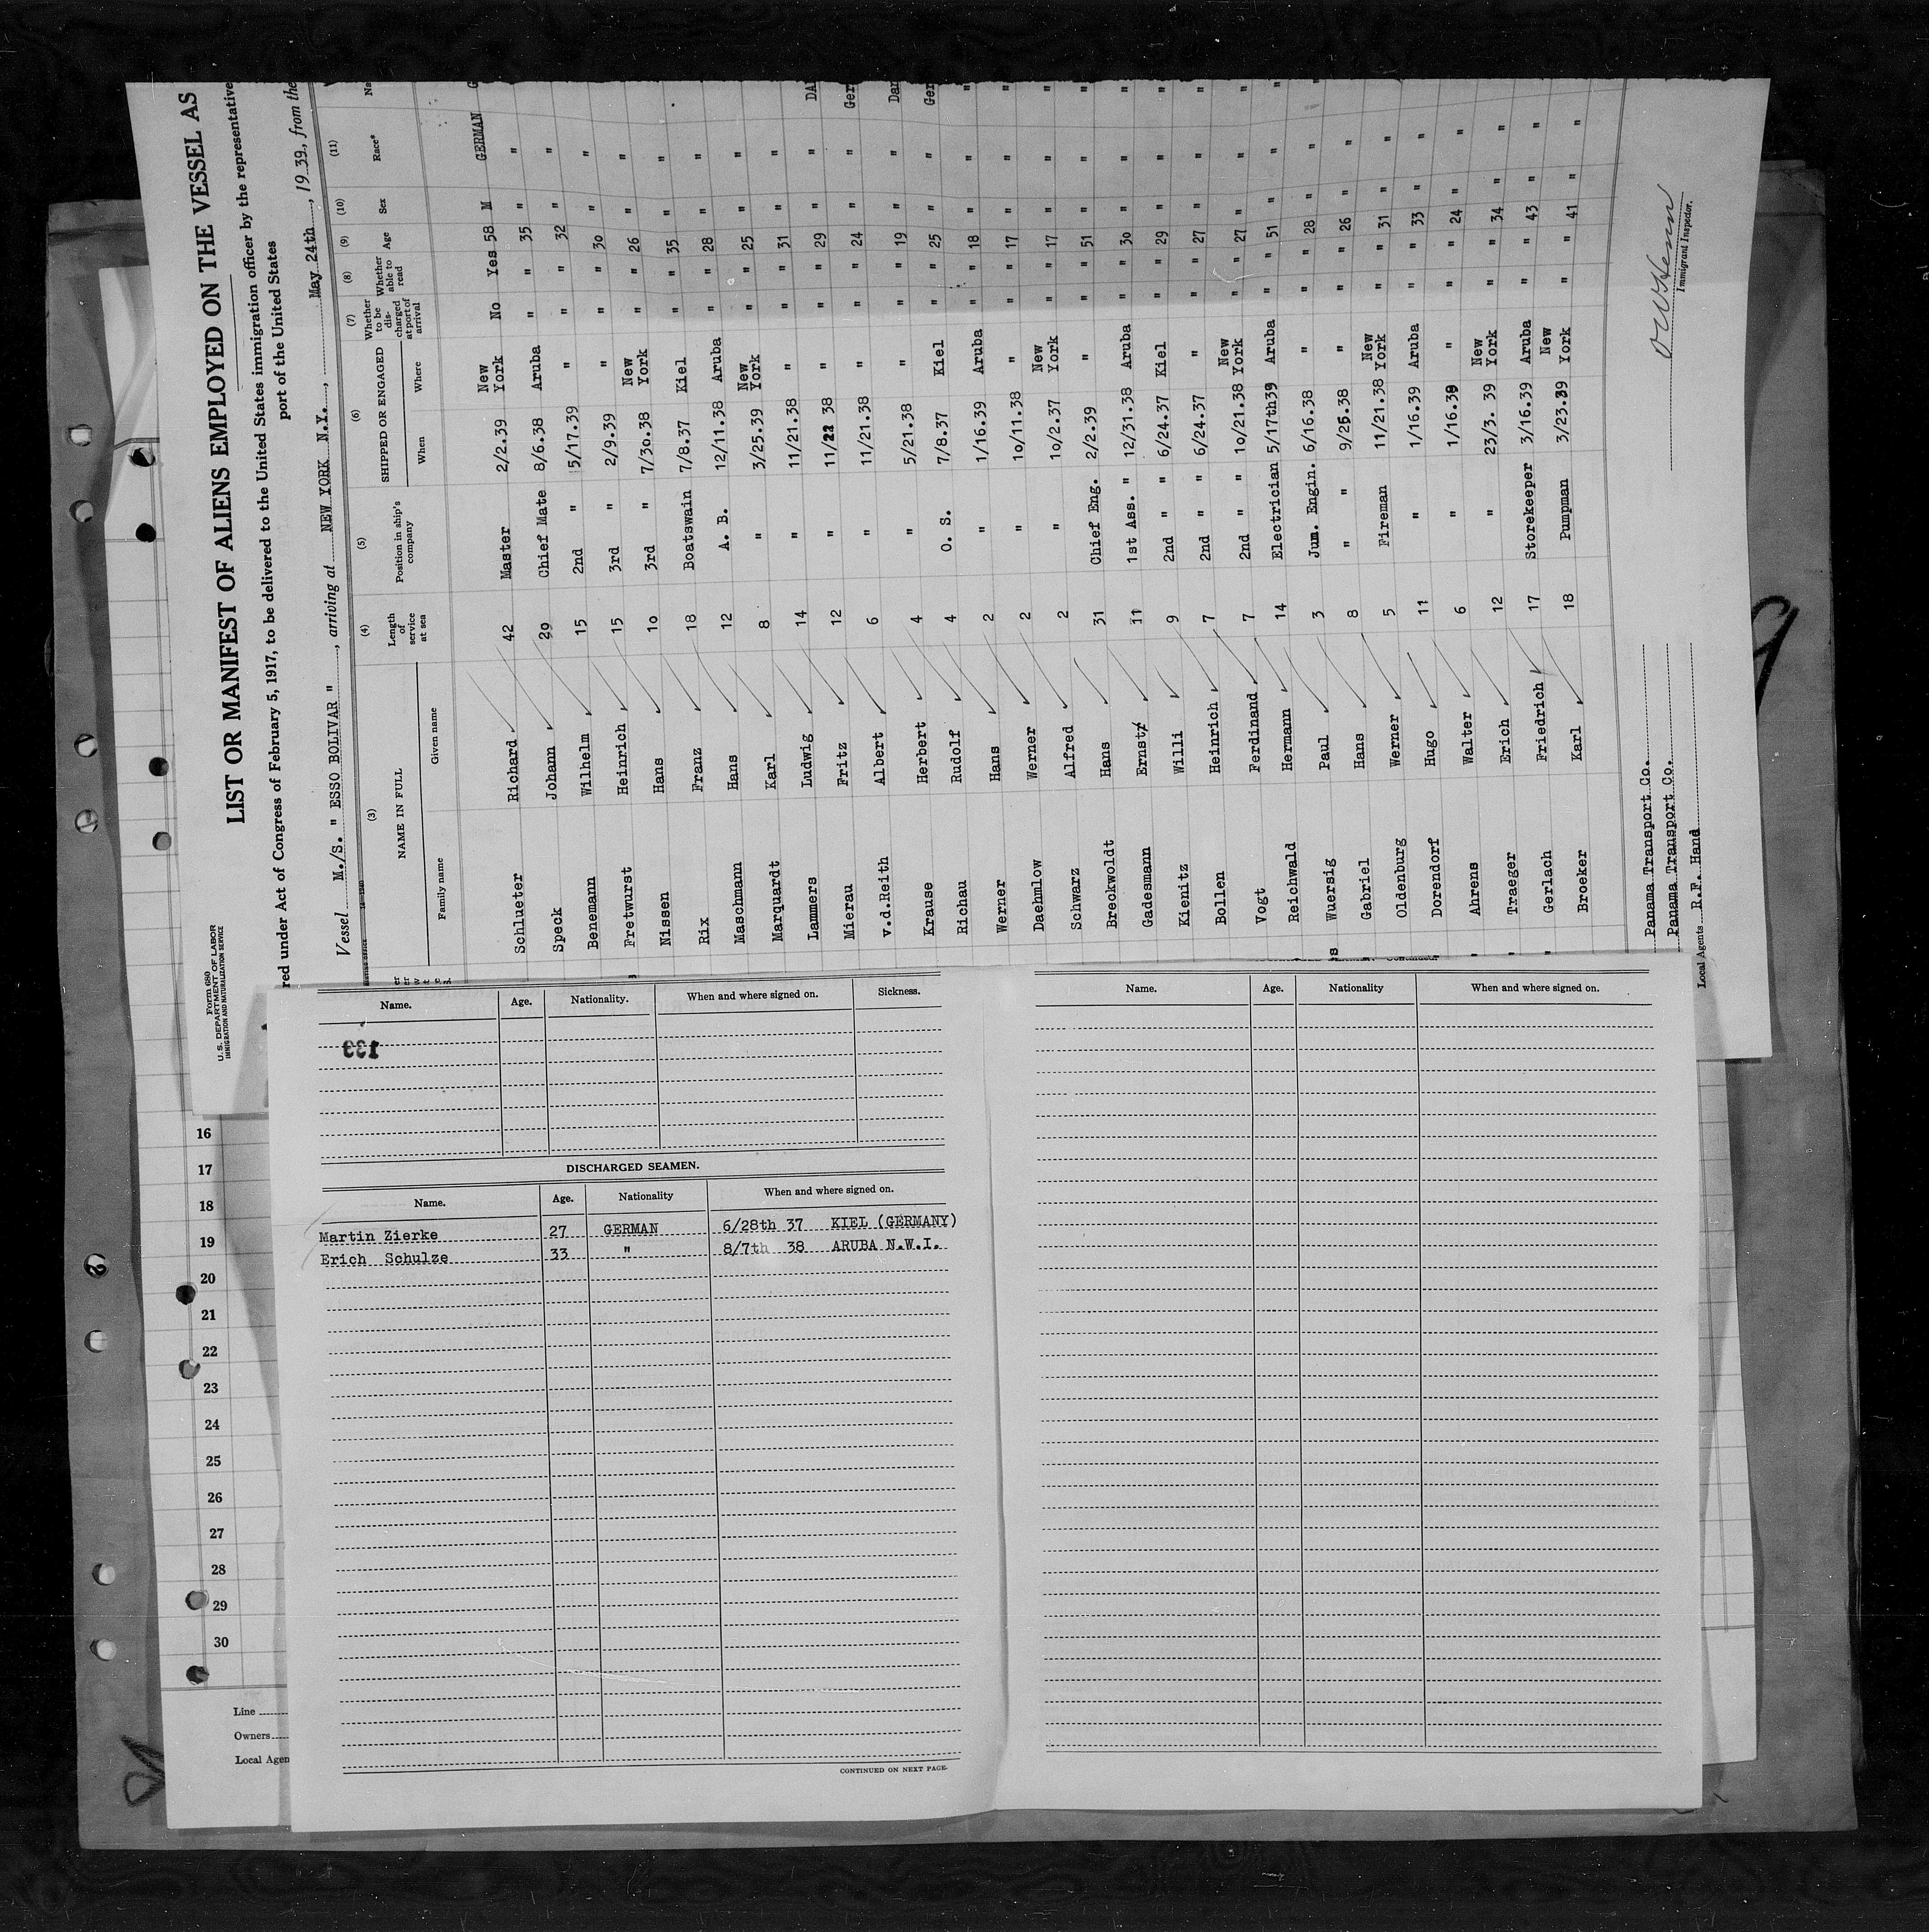 Form 680
U.S. DEPARTMENT OF LABOR
IMMIGRATION AND NATURALIZATION SERVICE
LIST OR MANIFEST OF ALIENS EMPLOYED ON THE VESSEL AS
red under Act of Congress of February 5, 1917, to be delivered to the United States immigration officer by the representative
port of the United States
Vessel M./S. " ESSO BOLIVAR ", arriving at NEW YORK N.Y., May 24th, 1939, from the
(3) (4) (5) (6) (7) (8) (9) (10) (11)
NAME IN FULL Length of service at sea Position in ship's company SHIPPED OR ENGAGED Whether to be discharged at port of arrival Whether able to read Age Sex Race* Na
Family name Given name When Where
Schlueter Richard 42 Master 2/2.39 New York No Yes 58 M GERMAN G
Speck Johann 29 Chief Mate 8/6.38 Aruba " " 35 " "
Benemann Wilhelm 15 2nd " 5/17.39 " " " 32 " "
Fretwurst Heinrich 15 3rd " 2/9.39 " " " 30 " "
Nissen Hans 10 3rd " 7/30.38 New York " " 26 " "
Rix Franz 18 Boatswain 7/8.37 Kiel " " 35 " "
Maschmann Hans 12 A. B. 12/11.38 Aruba " " 28 " "
Marquardt Karl 8 " 3/25.39 New York " " 25 " "
Lammers Ludwig 14 " 11/21.38 " " " 31 " "
Mierau Fritz 12 " 11/22 38 " " " 29 " " DA
v.d.Reith Albert 6 " 11/21.38 " " " 24 " " Ger
Krause Herbert 4 " 5/21.38 " " " 19 " " Dan
Richau Rudolf 4 O. S. 7/8.37 Kiel " " 25 " " Ger
Werner Hans 2 " 1/16.39 Aruba " " 18 " " "
Daehmlow Werner 2 " 10/11.38 " " " 17 " " "
Schwarz Alfred 2 " 10/2.37 New York " " 17 " " "
Breckwoldt Hans 31 Chief Eng. 2/2.39 " " " 51 " " "
Gadesmann Ernst 11 1st Ass. " 12/31.38 Aruba " " 30 " " "
Kienitz Willi 9 2nd " " 6/24.37 Kiel " " 29 " " "
Bollen Heinrich 7 2nd " " 6/24.37 " " " 27 " " "
Vogt Ferdinand 7 2nd " " 10/21.38 New York " " 27 " " "
Reichwald Hermann 14 Electrician 5/17th39 Aruba " " 51 " " "
Wuersig Paul 3 Jum. Engin. 6/16.38 " " " 28 " " "
Gabriel Hans 8 " " 9/26.38 " " " 26 " "
Oldenburg Werner 5 Fireman 11/21.38 New York " " 31 " "
Dorendorf Hugo 11 " 1/16.39 Aruba " " 33 " "
Ahrens Walter 6 " 1/16.39 " " " 24 " "
Traeger Erich 12 " 23/3. 39 New York " " 34 " "
Gerlach Friedrich 17 Storekeeper 3/16.39 Aruba " " 43 " "
Broeker Karl 18 Pumpman 3/23.39 New York " " 41 " "
Panama Transport Co.
Panama Transport Co.
Local Agents R.F. Hand
Immigrant Inspector.
Name. Age. Nationality. When and where signed on. Sickness.
139
DISCHARGED SEAMEN.
Name. Age. Nationality When and where signed on.
Martin Zierke 27 GERMAN 6/28th 37 KIEL (GERMANY)
Erich Schulze 33 " 8/7th 38 ARUBA N.W.I.
CONTINUED ON NEXT PAGE.
Name. Age. Nationality When and where signed on.
16
17
18
19
20
21
22
23
24
25
26
27
28
29
30
Line
Owners
Local Agen